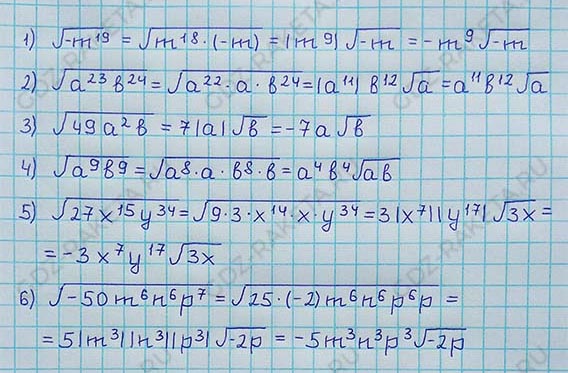 1) √-m¹⁹ = √m¹⁸·(-m) = |m⁹| √-m = -m⁹√-m
2) √a²³b²⁴ = √a²²·a·b²⁴ = |a¹¹| b¹²√a = a¹¹b¹²√a
3) √49a²b = 7|a|√b = -7a√b
4) √a⁹b⁹ = √a⁸·a·b⁸·b = a⁴b⁴√ab
5) √27x¹⁵y³⁴ = √9·3·x¹⁴·x·y³⁴ = 3|x⁷||y¹⁷|√3x =
= -3x⁷y¹⁷√3x
6) √-50m⁶n⁶p⁷ = √25·(-2)m⁶n⁶p⁶p =
= 5|m³||n³||p³|√-2p = -5m³n³p³√-2p
GDZ-RAKETA.RU